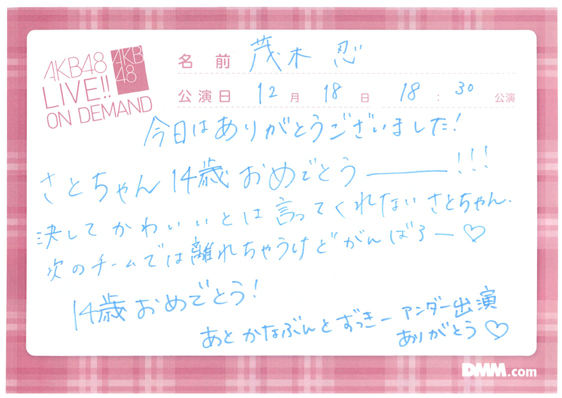 AKB48
LIVE!!
ON DEMAND
AKB
48
名前 茂木 忍
公演日 12月 18日 18:30公演
今日はありがとうございました!
さとちゃん14歳おめでとうーーー!!!
決してかわいいとは言ってくれないさとちゃん.
次のチームでは離れちゃうけどがんばろー♡
14歳おめでとう!
あと かなぶんとずっきー アンダー出演
ありがとう♡
DMM.com